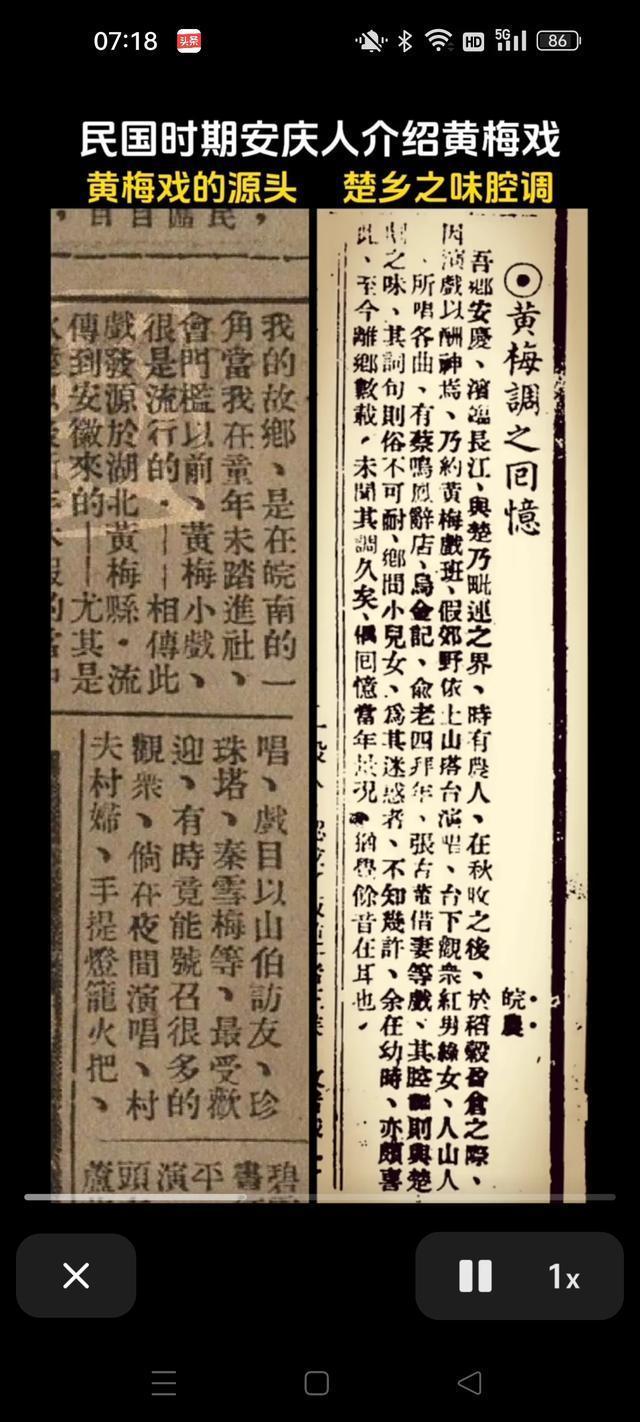 07:18
头条
HD
5G
86
民国时期安庆人介绍黄梅戏
黄梅戏的源头
楚乡之味腔调
我的故鄉、是在皖南的一
角當我在童年未踏進社、
會門檻以前、黃梅小戲、
很是流行的・｜｜相傳此
戲發源於湖北黃梅縣・流
傳到安徽來的｜｜尤其是
唱、戲目以山伯訪友、珍
珠塔、秦雪梅等、最受歡
迎、有時竟能號召很多的
觀衆、倘在夜間演唱、村
夫村婦、手提燈籠火把、
黃梅調之回憶
皖農
吾鄉安慶、濱臨長江、與楚乃毗連之界、時有農人、在秋收之後、於稻穀盈倉之際、
因演戲以酬神焉、乃約黃梅戲班、假郊野依土山搭台演唱、台下觀衆紅男綠女、人山人
、所唱各曲、有蔡鳴鳳辭店、烏金記、俞老四拜年、張古董借妻等戲、其腔調則與楚
之味、其詞句則俗不可耐、鄉間小兒女、爲其迷惑者、不知幾許、余在幼時、亦頗喜
此、至今離鄉數載，未聞其調久矣、偶回憶當年景況，猶覺餘音在耳也，
1x